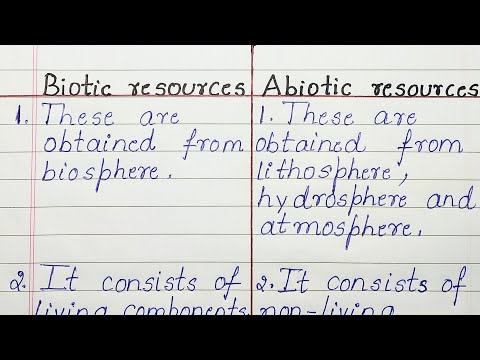 Biotic resources
1. These are
obtained from
biosphere.
2. It consists of
living components
Abiotic resources
1. These are
obtained from
lithosphere,
hydrosphere and
atmosphere.
2. It consists of
non-living